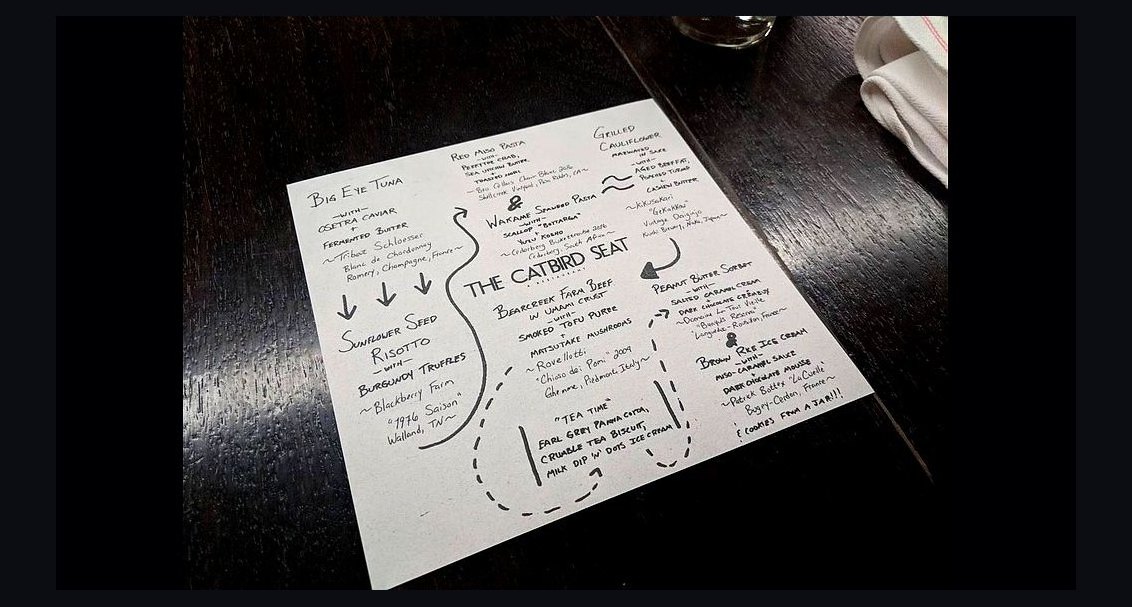 BIG EYE TUNA
-WITH-
OSETRA CAVIAR
+
FERMENTED BUTTER
~Tribaut Schloesser
Blanc de Chardonnay
Romery, Champagne, France~
SUNFLOWER SEED
RISOTTO
-WITH-
BURGUNDY TRUFFLES
~Blackberry Farm
"1976 Saison"
Walland, TN~
RED MISO PASTA
-WITH-
CRAB,
SEA URCHIN BUTTER
+
TOASTED NORI
&
WAKAME SEAWEED PASTA
-WITH-
SCALLOP "BOTTARGA"
+
YUZU KOSHO
~Cederberg
Cederberg, South Africa~
GRILLED
CAULIFLOWER
MARINATED
IN SAKE
-WITH-
AGED BEEF FAT,
+
CASHEW BUTTER
~Kikusakari
"Gekakkou"
Vintage Daiginjo
Kiuchi Brewery, Naka, Japan~
THE CATBIRD SEAT
BEARCREEK FARM BEEF
W/ UMAMI CRUST
-WITH-
SMOKED TOFU PUREE
+
MATSUTAKE MUSHROOMS
~Rovellotti
"Chioso dei Pomi" 2009
Ghemme, Piedmont, Italy~
"TEA TIME"
EARL GREY PANNA COTTA,
CRUMBLE TEA BISCUIT,
MILK DIP 'N' DOTS ICE CREAM
PEANUT BUTTER SORBET
-WITH-
SALTED CARAMEL CREAM
+
DARK CHOCOLATE CRÉMEUX
~Domaine La Tour Vieille
"Banyuls Reserva"
Languedoc-Roussillon, France~
&
BROWN RICE ICE CREAM
-WITH-
MISO-CARAMEL SAUCE
+
DARK CHOCOLATE MOUSSE
~Patrick Bottex "La Cueille"
Bugey-Cerdon, France~
COOKIES FROM A JAR!!!